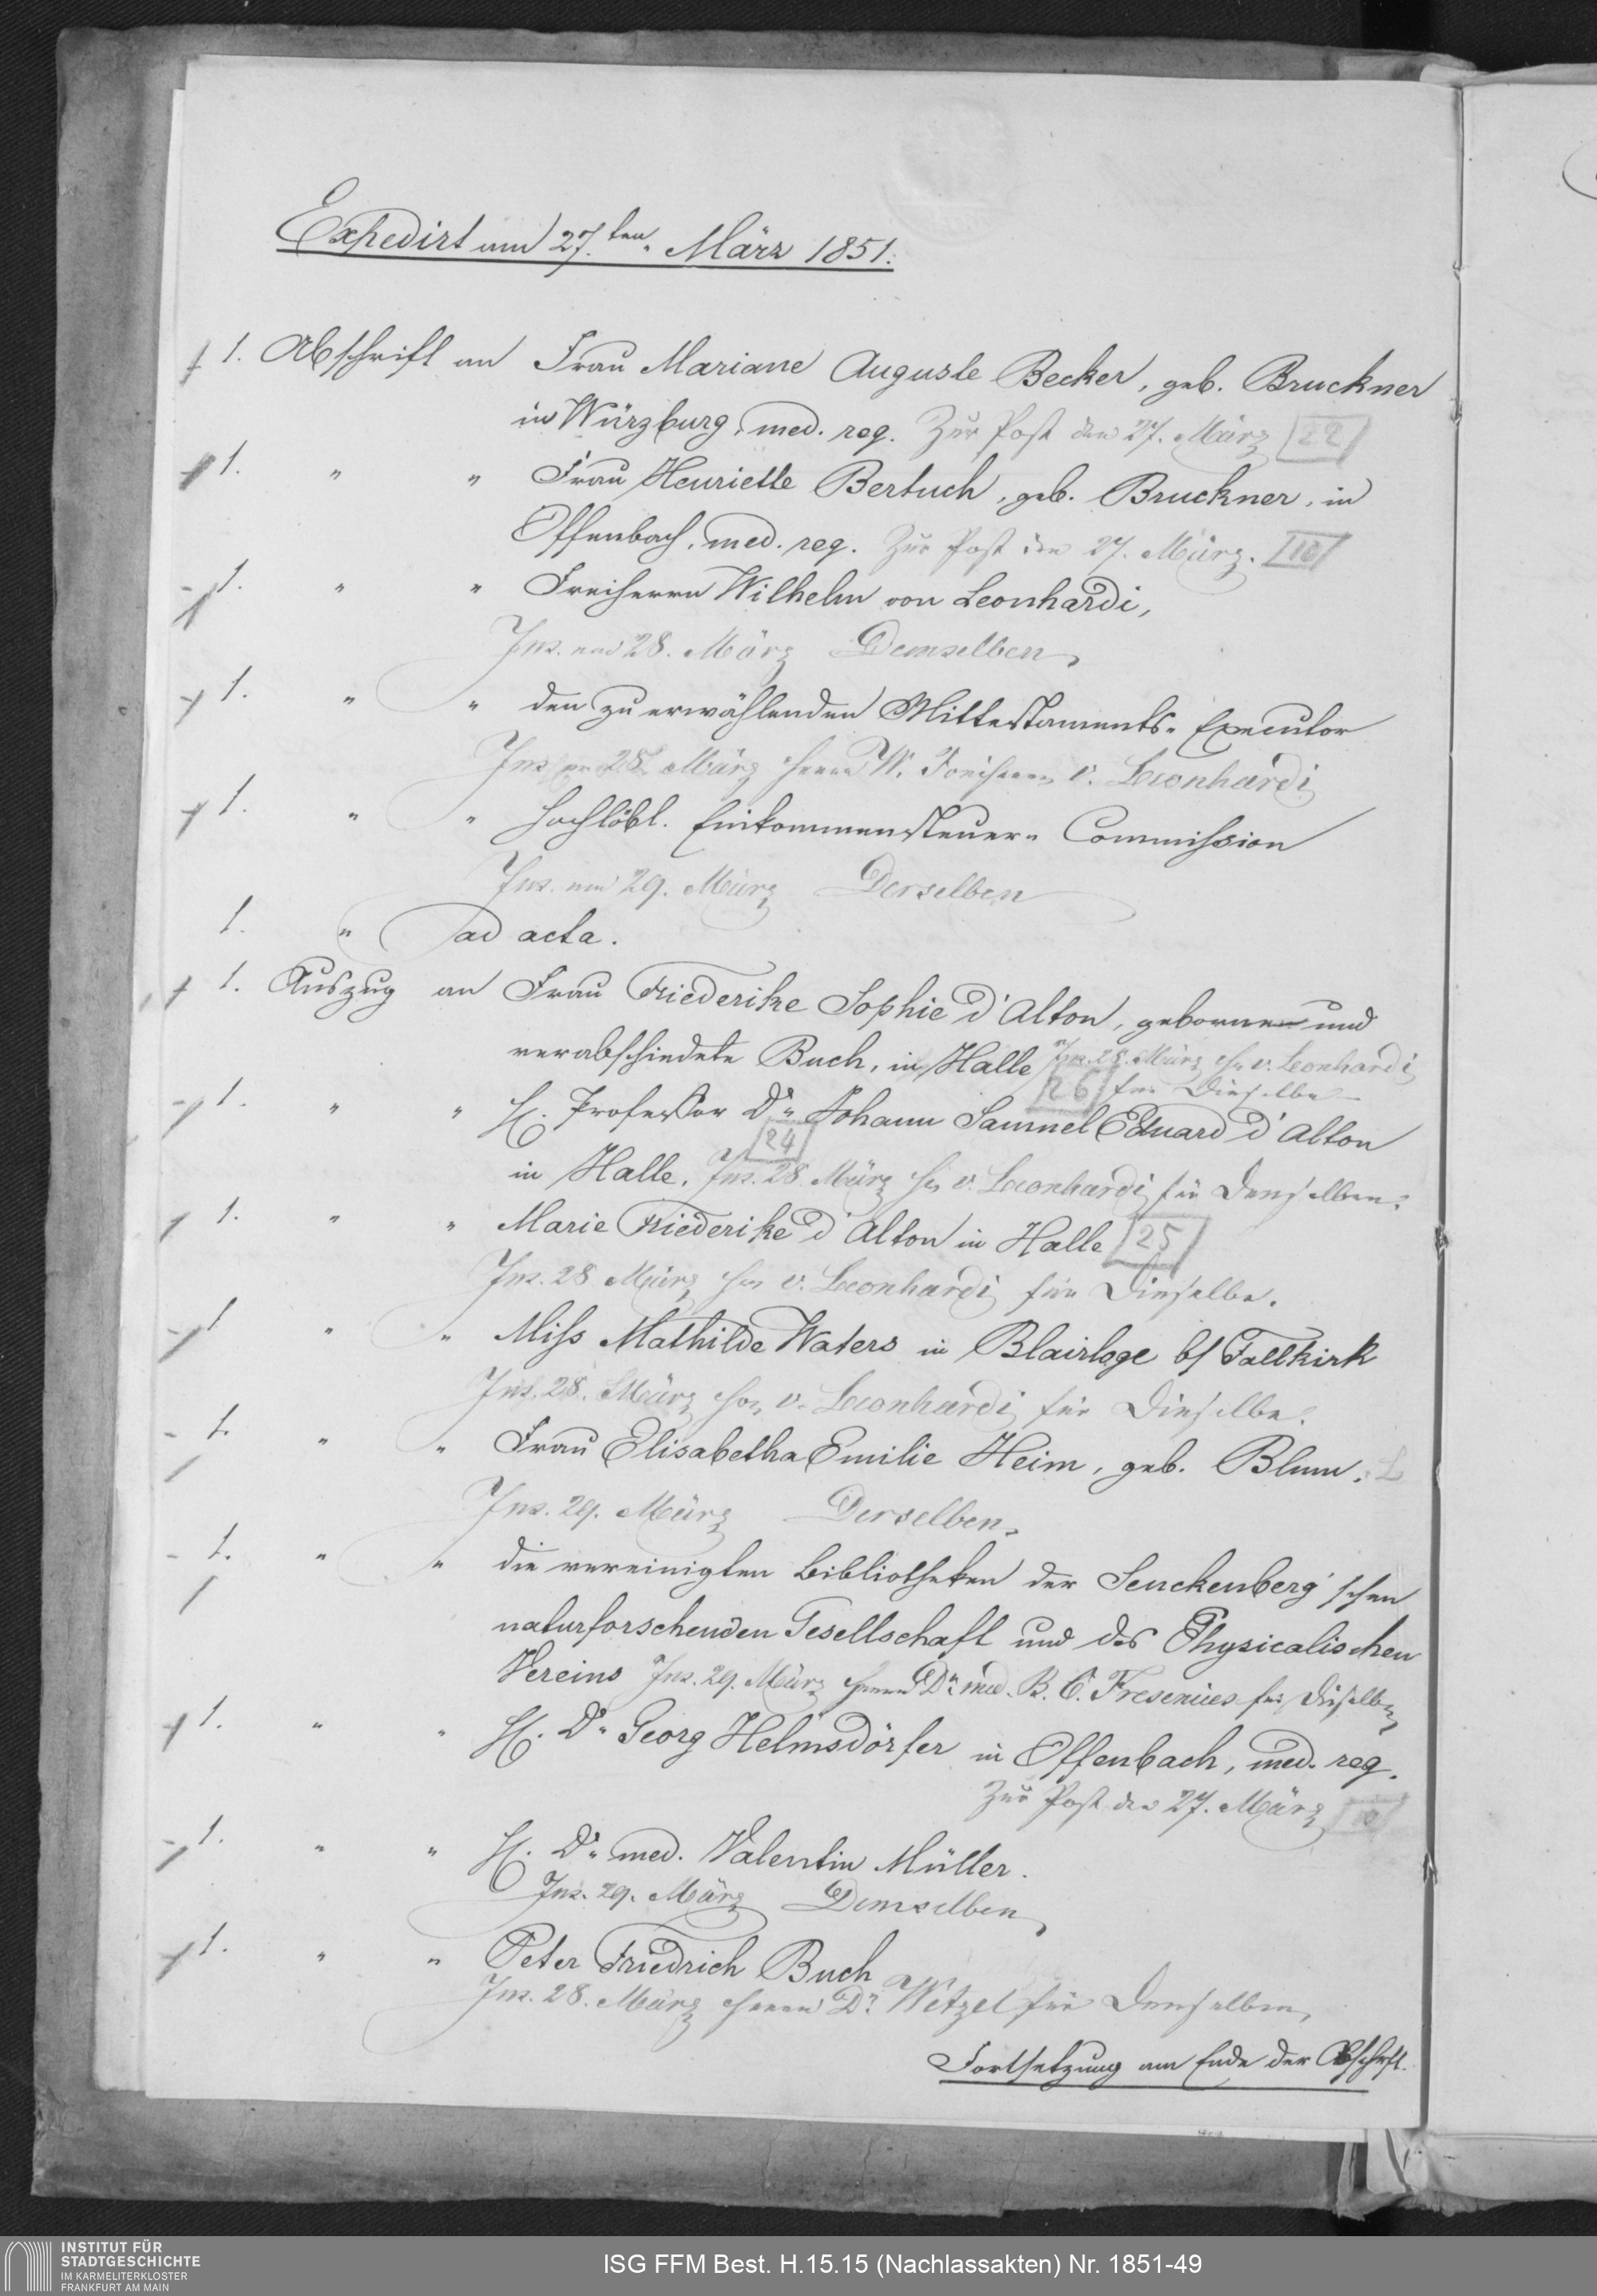 Expedirt am 27.ten März 1851.
1. Abschrift an Frau Mariane Auguste Becker, geb. Bruckner
in Würzburg, med. req. Zur Post den 27. März 22
1. " " Frau Henriette Bertuch, geb. Bruckner, in
Offenbach, med. req. Zur Post den 27. März. 10
1. " " Freiherrn Wilhelm von Leonhardi,
Ins. am 28. März Demselben
1. " " den zu erwählenden Mittestaments-Executor
Ins. am 28. März Herrn W. Freiherrn v. Leonhardi
1. " " Hochlöbl. Einkommensteuer-Commission
Ins. am 29. März Derselben
1. " ad acta.
1. Auszug an Frau Friederike Sophie d'Alton, geborne und
verabschiedete Buch, in Halle Ins. 28. März Hn v. Leonhardi
26 für Dieselbe
1. " " H. Professor Dr. Johann Samuel Eduard d'Alton
24
in Halle. Ins. 28 März Hn v. Leonhardi für Denselben.
1. " " Marie Friederike d'Alton in Halle 25
Ins. 28 März Hn v. Leonhardi für Dieselbe.
1 " " Miss Mathilde Waters in Blairloge b/ Fallkirk
Ins. 28. März Hn v. Leonhardi für Dieselbe.
1. " " Frau Elisabetha Emilie Heim, geb. Blum.
Ins. 29. März Derselben
1. " " die vereinigten Bibliotheken der Senckenberg'schen
naturforschenden Gesellschaft und des Physicalischen
Vereins Ins. 29. März Herrn Dr. med. B. C. Fresenius für Dieselben
1. " " H. Dr. Georg Helmsdörfer in Offenbach, med. req.
Zur Post den 27. März 10
1. " " H. Dr. med. Valentin Müller.
Ins. 29. März Demselben
1. " " Peter Friedrich Buch
Ins. 28. März Herrn Dr. Wetzel für Denselben
Fortsetzung am Ende der Abschrft.
INSTITUT FÜR
STADTGESCHICHTE
IM KARMELITERKLOSTER
FRANKFURT AM MAIN
ISG FFM Best. H.15.15 (Nachlassakten) Nr. 1851-49